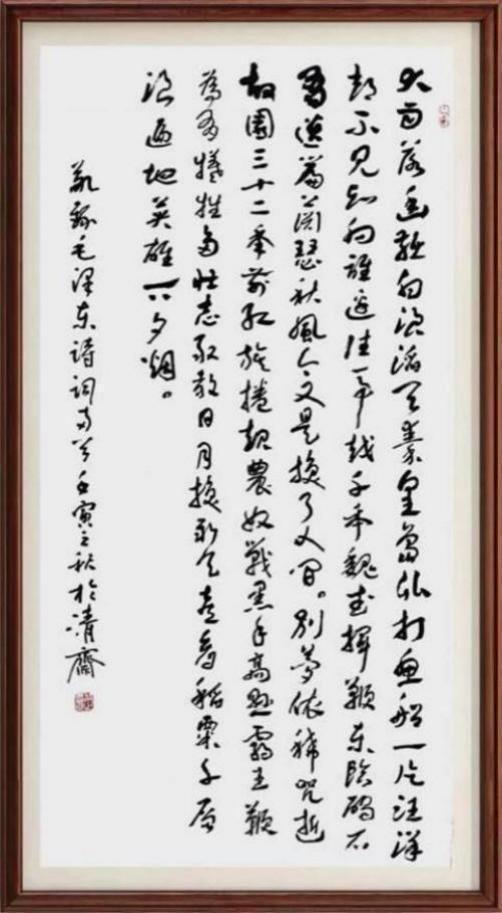 大雨落幽燕白浪滔天秦皇岛外打鱼船一片汪洋
都不见知向谁边往事越千年魏武挥鞭东临碣石
有遗篇萧瑟秋风今又是换了人间。别梦依稀咒逝
故園三十二年前红旗捲起農奴戟黑手高悬霸主鞭
為有犧牲多壮志敢教日月换新天喜看稻粟千层
浪遍地英雄下夕烟。
敬録毛泽东詩詞两首壬寅之秋於清齋